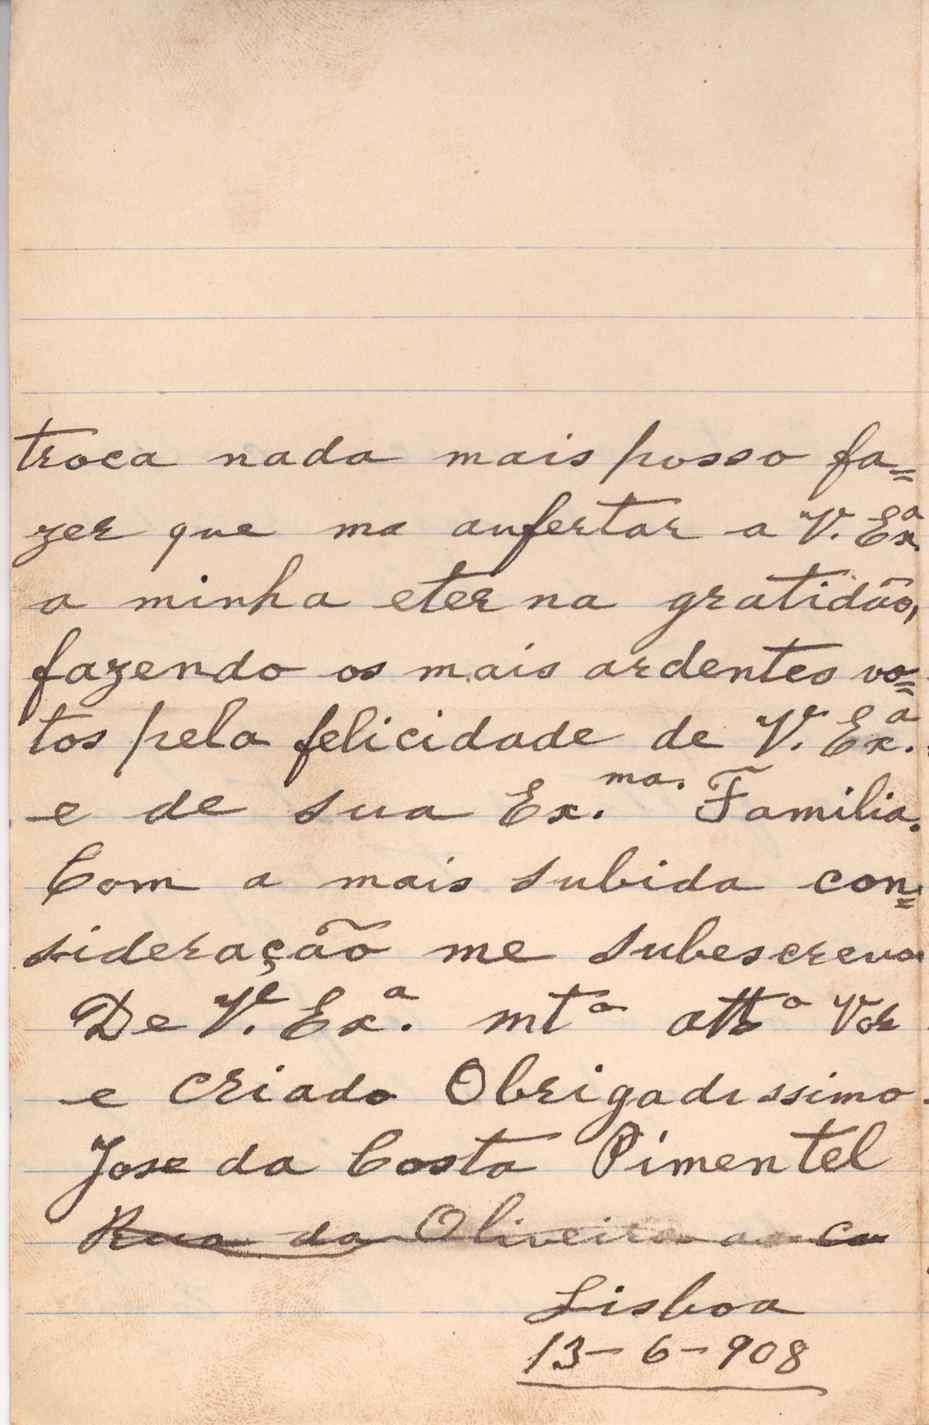 troca nada mais posso fa=
zer que ma aufertar a V. Exª
a minha eterna gratidão,
fazendo os mais ardentes vo=
tos pela felicidade de V. Ex.ª
e de sua Ex.ma. Familia.
Com a mais subida con=
sideração me subescrevo
De V. Ex.ª mtº attº Vor
e criado Obrigadissimo
Jose da Costa Pimentel
Rua da Oliveira ao Ca
Lisboa
13-6-908